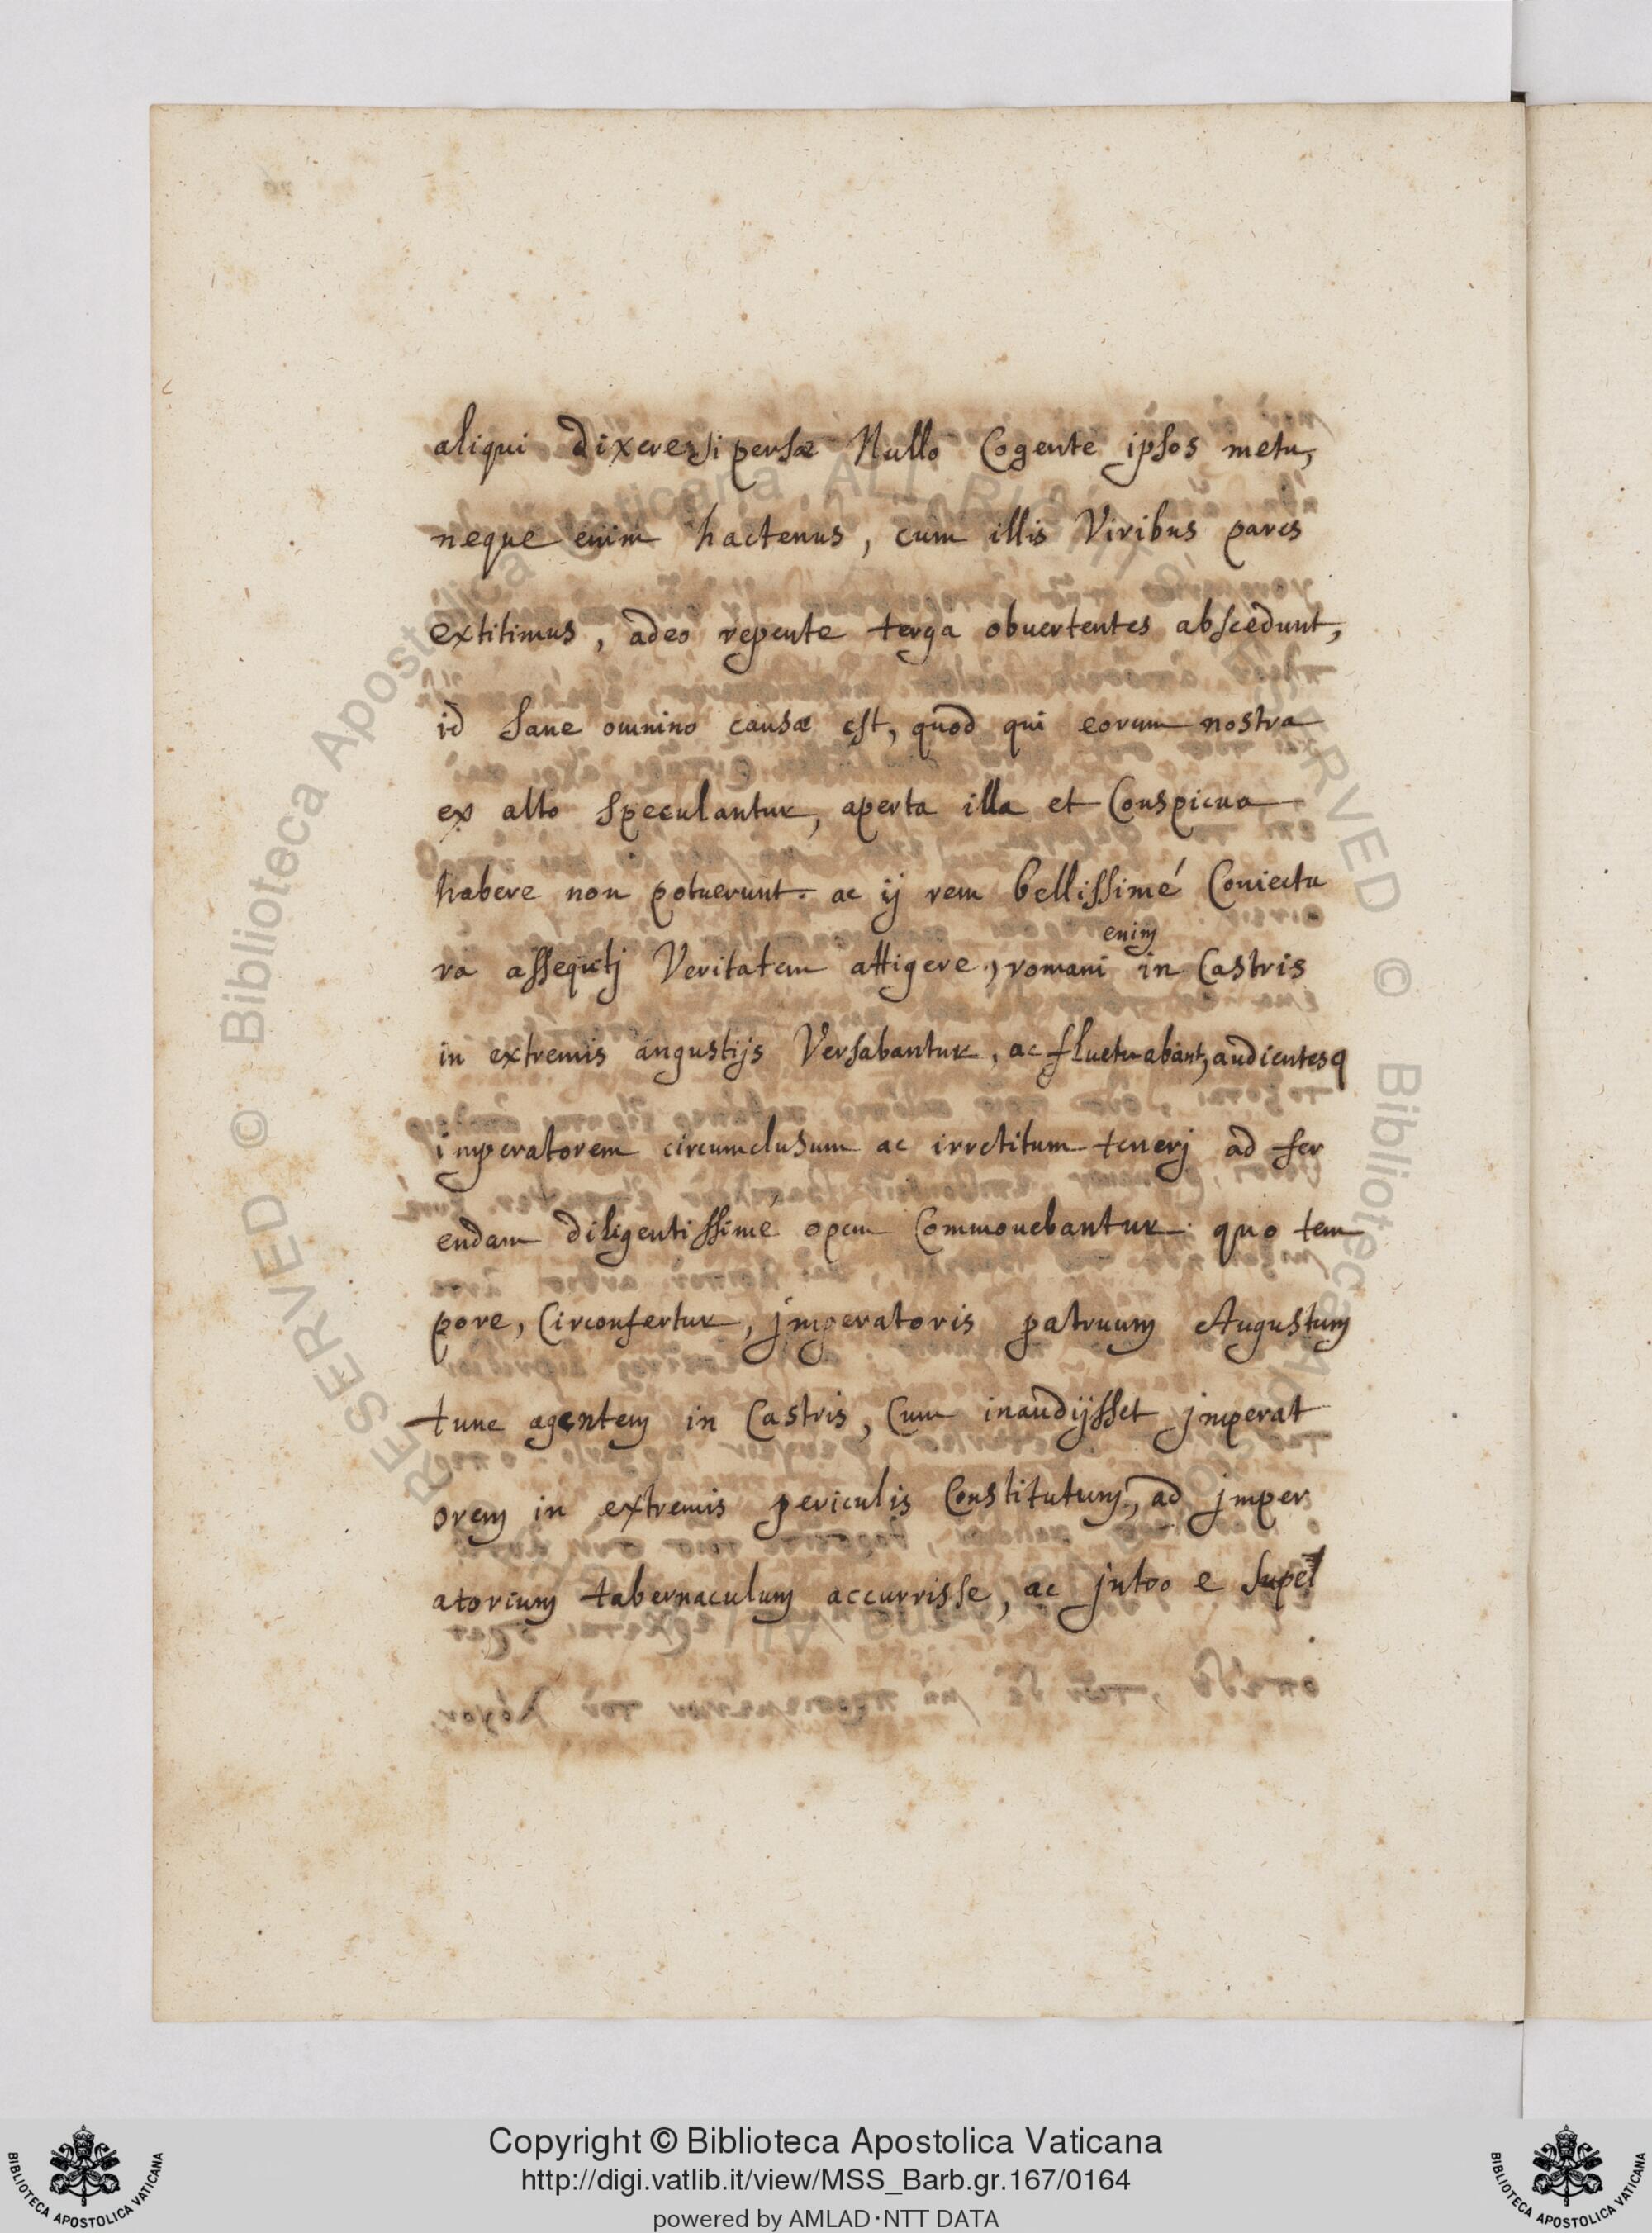 aliqui dixere si persæ Nullo Cogente ipsos metu,
neque enim hactenus, cum illis Viribus pares
extitimus, adeo repente terga obuertentes abscedunt,
id sane omnino causæ est, quod qui eorum nostra
ex alto speculantur, aperta illa et Conspicua
habere non potuerunt. ac ij rem bellissimé Coniectu
enim
ra assequtj Veritatem attigere, romani in Castris
in extremis angustijs Versabantur, ac fluctuabant, audientesq
imperatorem circumclusum ac irretitum tenerj ad fer
endam diligentissime opem Commouebantur. quo tem
pore, Circonfertur, jmperatoris patruum Augustum
tunc agentem in Castris, Cum inaudijsset jmperat
orem in extremis periculis Constitutum, ad jmper
atorium tabernaculum accurrisse, ac e supel
Copyright © Biblioteca Apostolica Vaticana
http://digi.vatlib.it/view/MSS_Barb.gr.167/0164
powered by AMLAD·NTT DATA
BIBLIOTECA APOSTOLICA VATICANA
BIBLIOTECA APOSTOLICA VATICANA